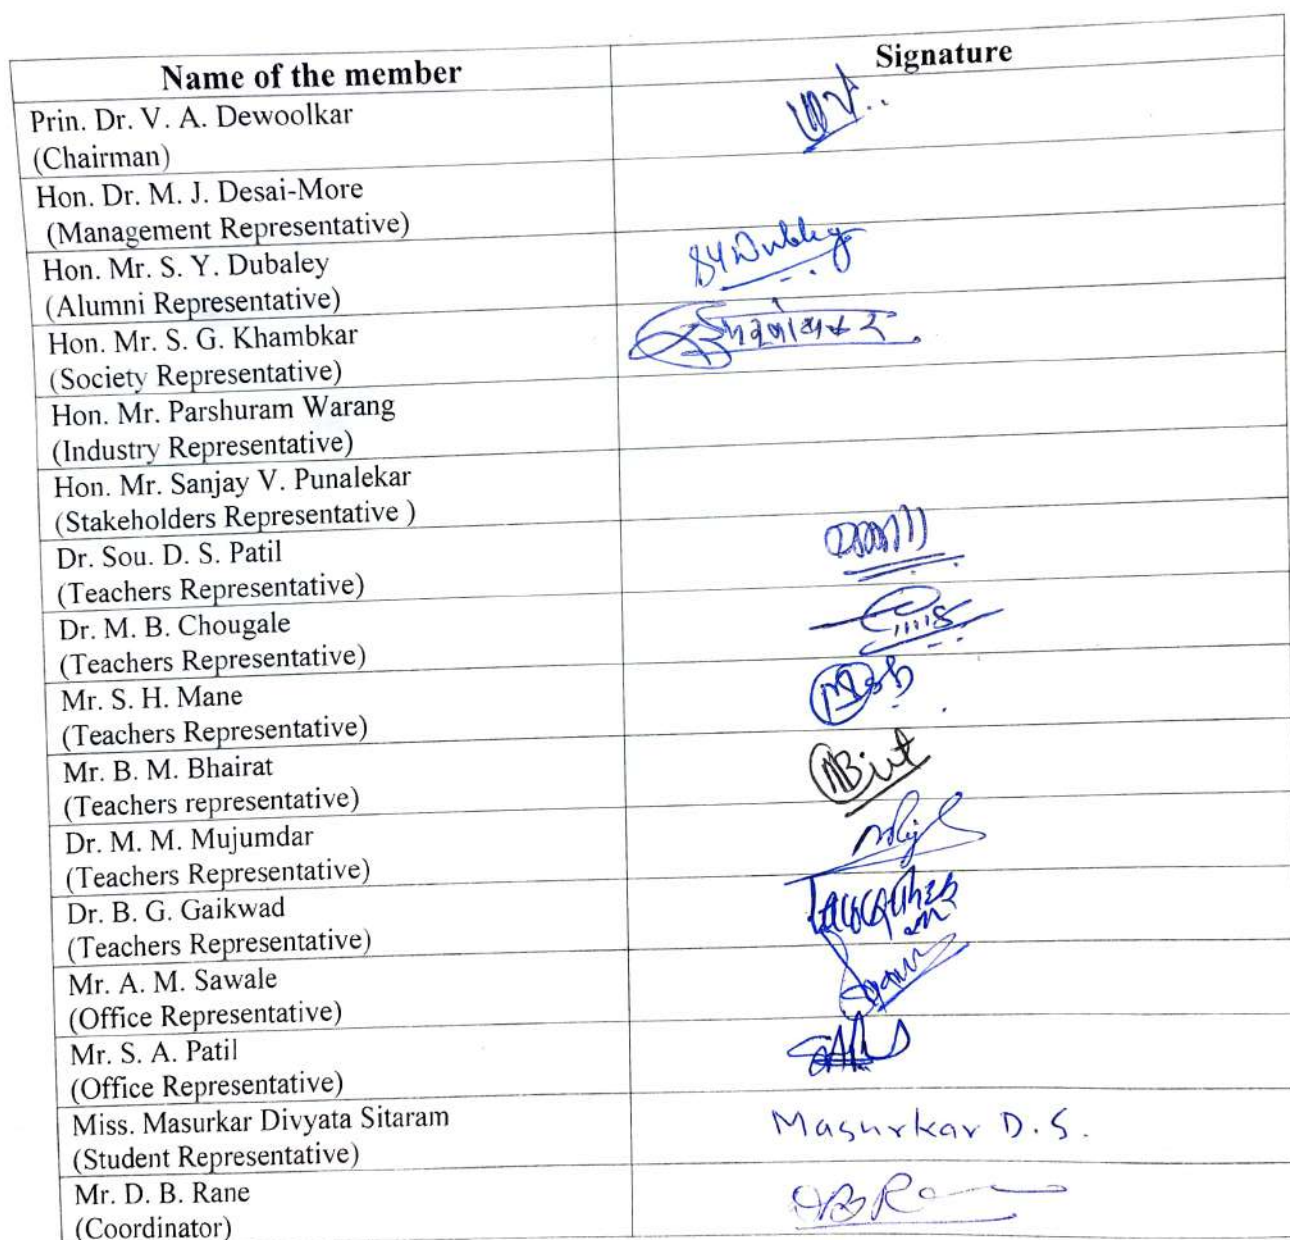 Name of the member Signature
Prin. Dr. V. A. Dewoolkar
(Chairman)
Hon. Dr. M. J. Desai-More
(Management Representative)
Hon. Mr. S. Y. Dubaley
(Alumni Representative)
SYDubley
Hon. Mr. S. G. Khambkar
(Society Representative)
Hon. Mr. Parshuram Warang
(Industry Representative)
Hon. Mr. Sanjay V. Punalekar
(Stakeholders Representative )
Dr. Sou. D. S. Patil
(Teachers Representative)
Dr. M. B. Chougale
(Teachers Representative)
Mr. S. H. Mane
(Teachers Representative)
Mr. B. M. Bhairat
(Teachers representative)
Dr. M. M. Mujumdar
(Teachers Representative)
Dr. B. G. Gaikwad
(Teachers Representative)
Mr. A. M. Sawale
(Office Representative)
Mr. S. A. Patil
(Office Representative)
Miss. Masurkar Divyata Sitaram
(Student Representative)
Masurkar D.S.
Mr. D. B. Rane
(Coordinator)